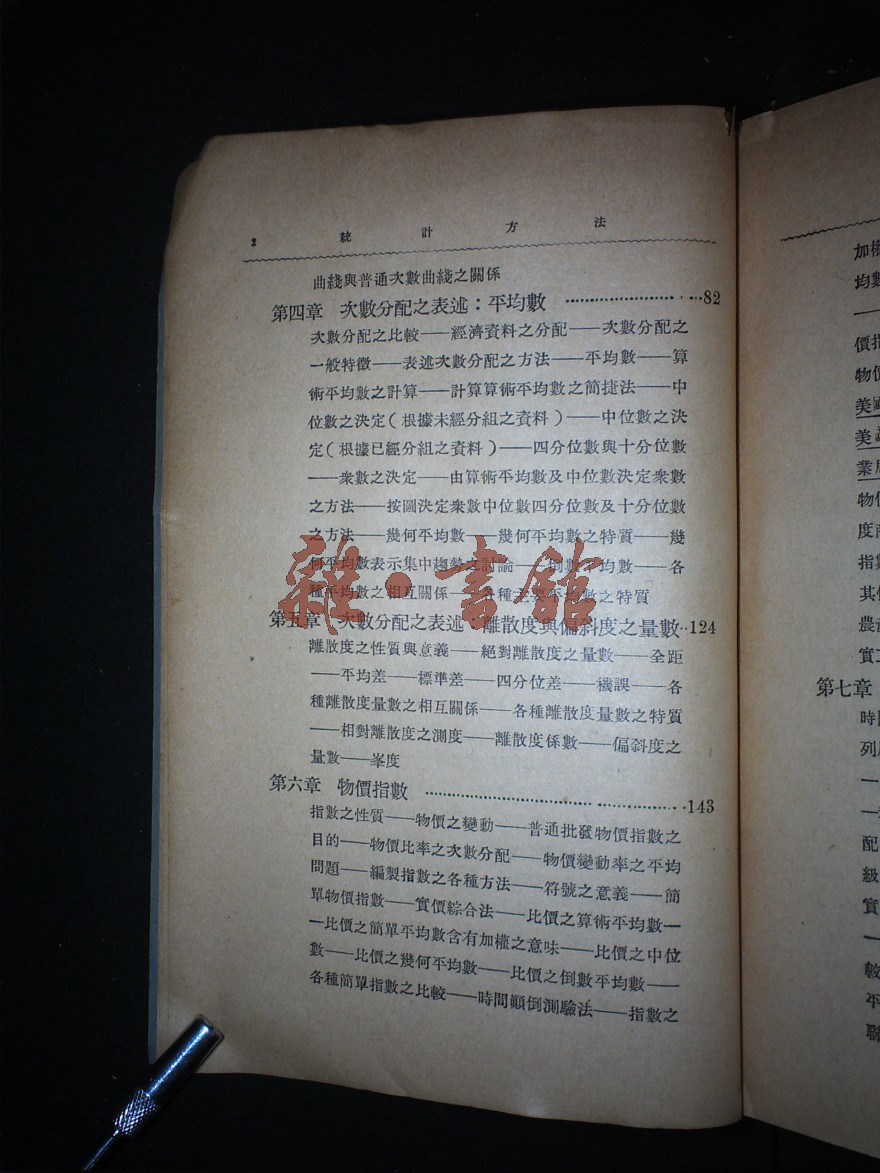 2 統計方法
曲綫與普通次數曲綫之關係
第四章 次數分配之表述：平均數 ·····················82
次數分配之比較——經濟資料之分配——次數分配之
一般特徵——表述次數分配之方法——平均數——算
術平均數之計算——計算算術平均數之簡捷法——中
位數之決定(根據未經分組之資料)——中位數之決
定(根據已經分組之資料)——四分位數與十分位數
——衆數之決定——由算術平均數及中位數決定衆數
之方法——按圖決定衆數中位數四分位數及十分位數
之方法——幾何平均數——幾何平均數之特質——幾
何平均數表示集中趨勢之討論——倒數平均數——各
種平均數之相互關係——各種主要平均數之特質
雜·書館
第五章 次數分配之表述：離散度與偏斜度之量數··124
離散度之性質與意義——絕對離散度之量數——全距
——平均差——標準差——四分位差——機誤——各
種離散度量數之相互關係——各種離散度量數之特質
——相對離散度之測度——離散度係數——偏斜度之
量數——峯度
第六章 物價指數 ·······································143
指數之性質——物價之變動——普通批發物價指數之
目的——物價比率之次數分配——物價變動率之平均
問題——編製指數之各種方法——符號之意義——簡
單物價指數——實價綜合法——比價之算術平均數—
—比價之簡單平均數含有加權之意味——比價之中位
數——比價之幾何平均數——比價之倒數平均數——
各種簡單指數之比較——時間顚倒測驗法——指數之
加權
均數
——
價指
物價
美國
美
業
物價
度
指數
其
農
實
第七章
時
列
一
一
配
級
實
一
較
平
聯